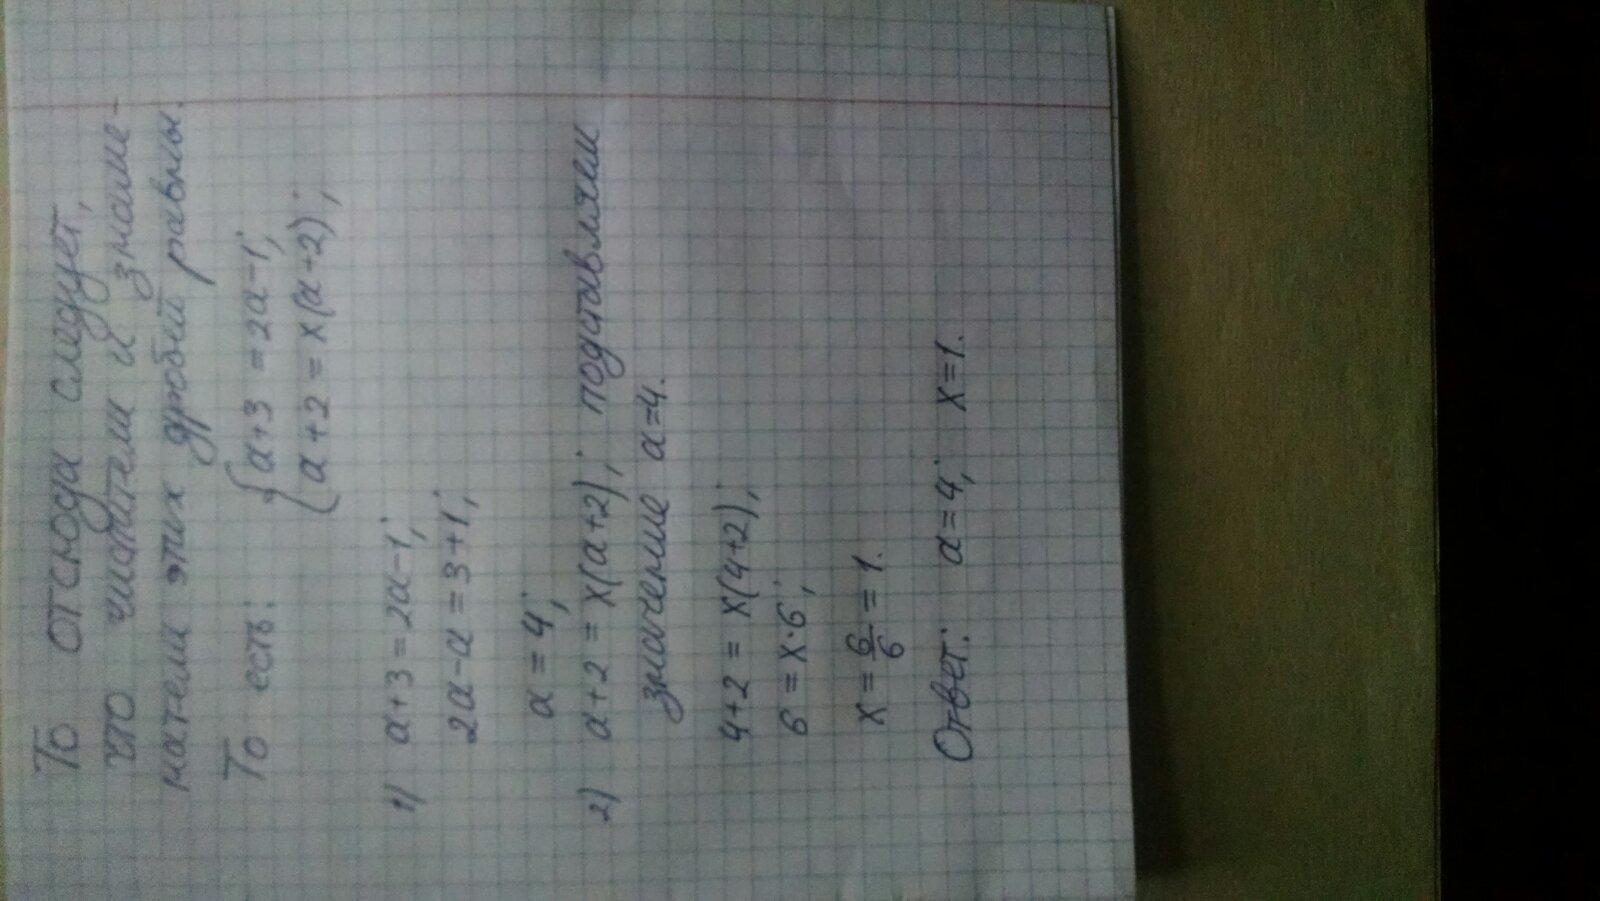 То отсюда следует,
что числители и знаме-
натели этих дробей равны.
То есть: { a+3 = 2a-1;
a+2 = x(a+2);
1) a+3 = 2a-1;
2a-a = 3+1;
a = 4;
2) a+2 = x(a+2); подставляем
значение a=4.
4+2 = x(4+2);
6 = x·6;
x = 6/6 = 1.
Ответ: a=4; x=1.